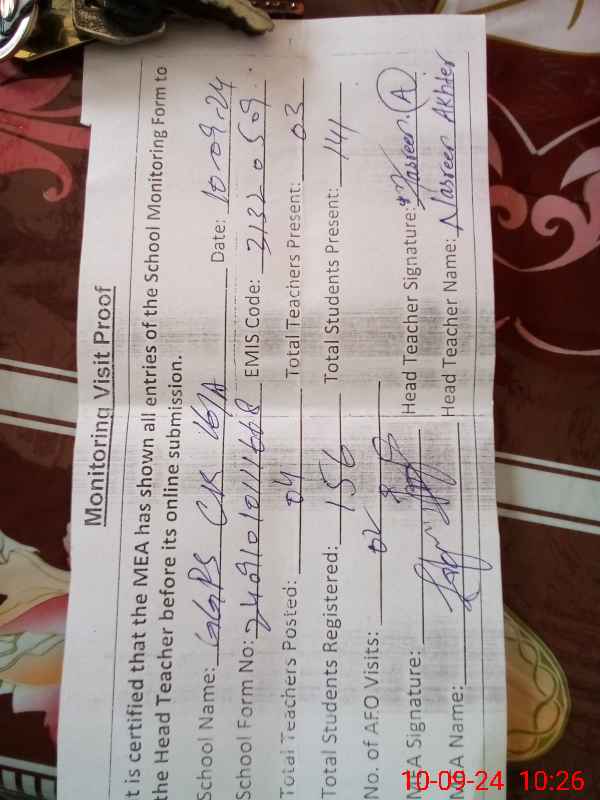 Monitoring Visit Proof
t is certified that the MEA has shown all entries of the School Monitoring Form to
the Head Teacher before its online submission.
School Name: GGPS Chk 167/A Date: 10-09-24
School Form No: EMIS Code: 31320509
Total Teachers Posted: 04 Total Teachers Present: 03
Total Students Registered: 156 Total Students Present: 141
No. of AFO Visits: 02
MEA Signature: Head Teacher Signature: Nasreen. A
MEA Name: Head Teacher Name: Nasreen Akhter
10-09-24 10:26